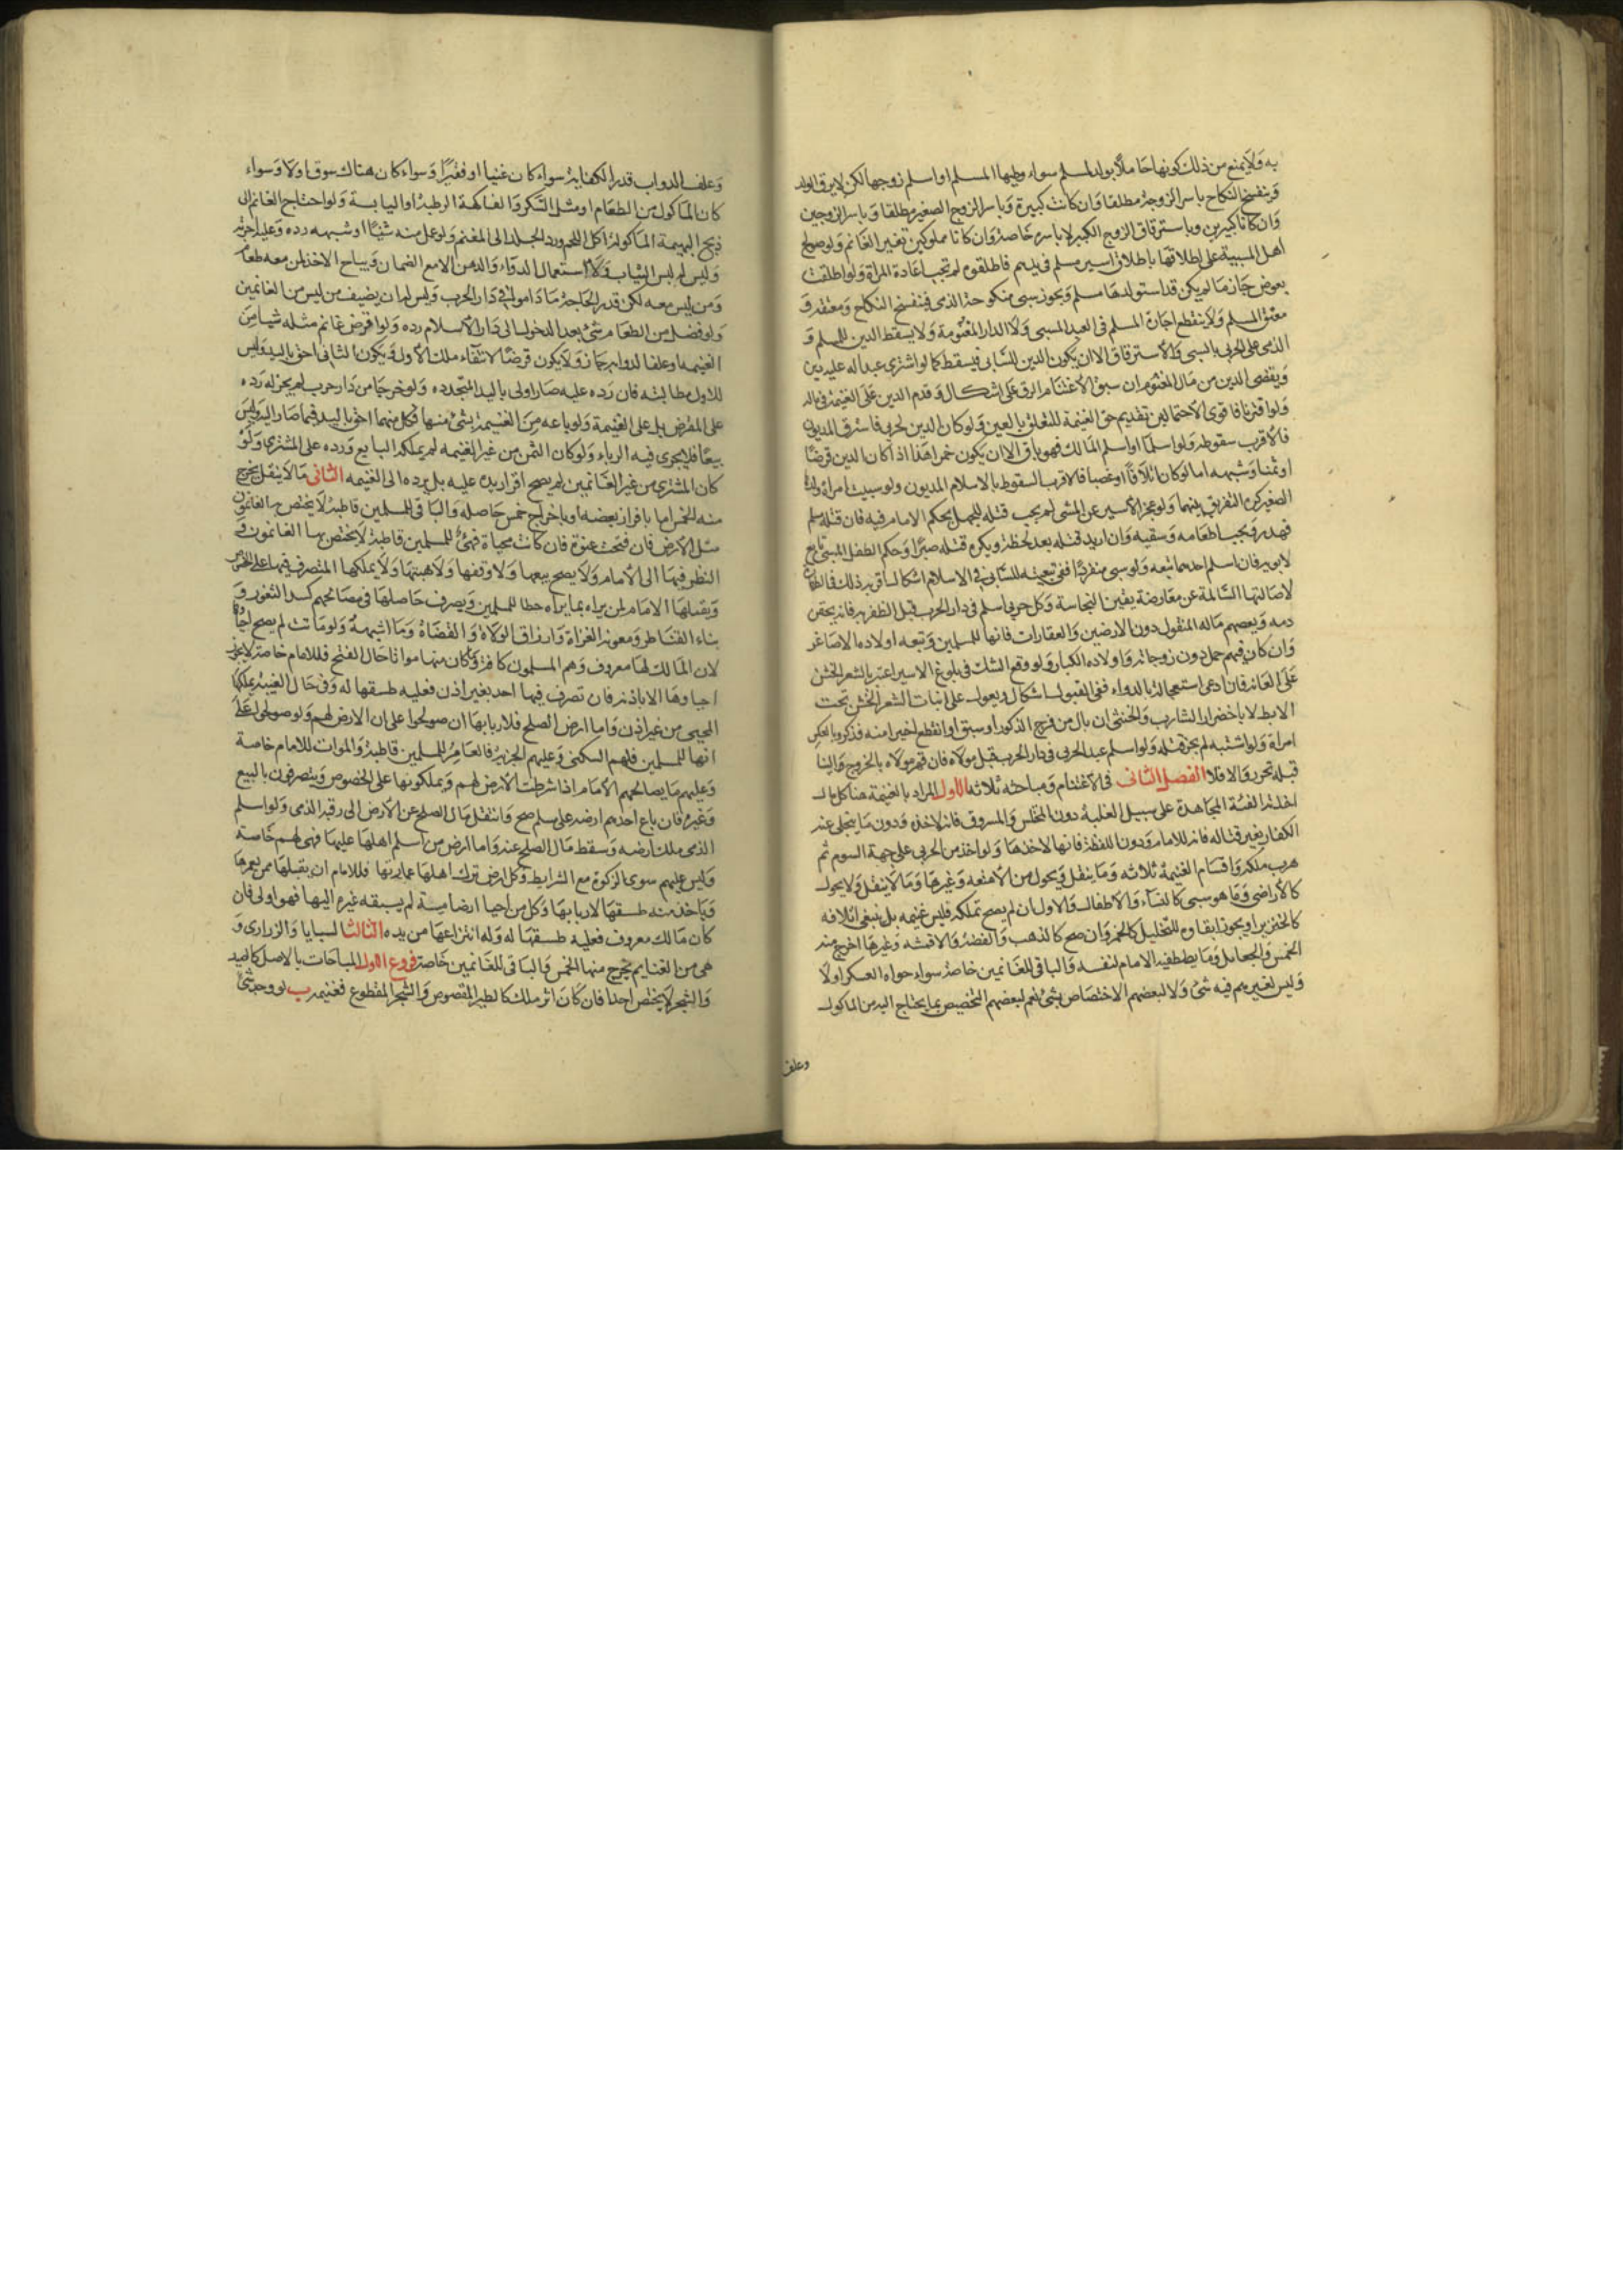 به ولا يمنع من ذلك كونها حاملا بولد لمسلم سواء وطيها المسلم او اسلم زوجها لكن لا يرق الولد
وينفسخ النكاح باسر الزوجة مطلقا وان كانت كبيرة وباسر الزوج الصغير مطلقا وباسر الزوجين
وان كانا كبيرين وباسترقاق الزوج الكبير لا باسره خاصة وان كانا مملوكين تخير الغانم ولو صولح
اهل المسبية على اطلاقها باطلاق اسير مسلم في يدهم فاطلقوه لم تجب اعادة المراة ولو اطلقت
بعوض جاز ما لم يكن قد استولدها مسلم ويجوز سبي منكوحة الذمي فينفسخ النكاح ومعتقه و
معتق المسلم ولا ينقطع اجارة المسلم في العبد المسبي ولا الدار المغنومة ولا يسقط الدين للمسلم و
الذمي على الحربي بالسبي والاسترقاق الا ان يكون الدين للسابي فيسقط كما لو اشترى عبدا له عليه دين
ويقضى الدين من مال المغنوم ان سبق الاغتنام الرق على اشكال وقدم الدين على الغنيمة في ماله
ولو اقترنا فاقوى الاحتمالين تقديم حق الغنيمة للتعلق بالعين ولو كان الدين لحربي فاسترق المديون
فالاقرب سقوطه ولو اسلما او اسلم المالك فهو باق الا ان يكون خمرا هذا اذا كان الدين قرضا
او ثمنا وشبهه اما لو كان اتلافا او غصبا فالاقرب السقوط بالاسلام المديون ولو سبيت امراة وولدها
الصغير كره التفريق بينهما ولو عجز الاسير عن المشي لم يجب قتله للجهل بحكم الامام فيه فان قتله مسلم
فهدر ويجب اطعامه وسقيه وان اريد قتله بعد لحظة ويكره قتله صبرا وحكم الطفل المسبي تابع
لابويه فان اسلم احدهما تبعه ولو سبي منفردا ففي تبعيته للسابي في الاسلام اشكال اقربه ذلك في الطهارة
لاصالتها السالمة عن معارضة يقين النجاسة وكل حربي اسلم في دار الحرب قبل الظفر به فانه يحقن
دمه ويعصم ماله المنقول دون الارضين والعقارات فانها للمسلمين وتبعه اولاده الاصاغر
وان كان فيهم حمل دون زوجاته واولاده الكبار ولو وقع الشك في بلوغ الاسير اعتبر بالشعر الخشن
على العانة فان ادعى استعجاله بالدواء ففي القبول اشكال ويعول على انبات الشعر الخشن تحت
الابط لا باخضرار الشارب والخنثى ان بال من فرج الذكور او سبق او انقطع اخيرا منه فذكر وبالعكس
امراة ولو اشتبه لم يجز قتله ولو اسلم عبد الحربي في دار الحرب قبل مولاه فان قهر مولاه بالخروج الينا
قبله تحرر والا فلا الفصل الثاني في الاغتنام ومباحثه ثلاثة الاول المراد بالغنيمة هنا كل مال
اخذته الفئة المجاهدة على سبيل الغلبة دون المختلس والمسروق فانه لاخذه ودون ما ينجلى عنه
الكفار بغير قتال فانه للامام ودون اللقطة فانها لاخذها ولو اخذ من الحربي على جهة السوم ثم
هرب ملكه واقسام الغنيمة ثلاثة وما ينقل ويحول من الامتعة وغيرها وما لا ينقل ولا يحول
كالاراضي وما هو سبي كالنساء والاطفال والاول ان لم يصح تملكه فليس غنيمة بل ينبغي اتلافه
كالخنزير او يجوز ابقاوه للتخليل كالخمر وان صح كالذهب والفضة والاقشه وغيرها اخرج منه
الخمس والجعايل وما يصطفيه الامام لنفسه والباقي للغانمين خاصة سواء حواه العسكر او لا
وليس لغيرهم فيه شئ ولا لبعضهم الاختصاص بشئ نعم لبعضهم التخصيص بما يحتاج اليه من الماكول
وعلف
وعلف الدواب قدر الكفاية سواء كان غنيا او فقيرا وسواء كان هناك سوق او لا وسواء
كان الماكول من الطعام او مثل السكر والفاكهة الرطبة او اليابسة ولو احتاج الغانم الى
ذبح البهيمة الماكولة اكل اللحم ورد الجلد الى المغنم ولو عمل منه شيئا او شبهه رده وعليه اجرته
وليس له لبس الثياب ولا استعمال الدواء والدهن الا مع الضمان ويباح الاخذ لمن معه طعام
ومن ليس معه لكن قدر الحاجة ما داموا في دار الحرب وليس له ان يضيف من ليس من الغانمين
ولو فضل من الطعام شئ بعد الدخول الى دار الاسلام رده ولو اقرض غانم مثله شيا من
الغنيمه او علف الدوابه جاز ولا يكون قرضا لانتفاء ملك الاول ويكون الثاني احق باليد وليس
للاول مطالبته فان رده عليه صار اولى باليد المتجدده ولو خرجا من دار حرب لم يجز له رده
على المقرض بل على الغنيمة ولو باعه من الغنيمة بشئ منها فكل منهما احق باليد فيما صار اليه وليس
بيعا فلا يجرى فيه الرباء ولو كان الثمن من غير الغنيمه لم يملكه البايع ورده على المشترى ولو
كان المشترى من غير الغانمين لم يصح اقراريده عليه بل يرده الى الغنيمه الثاني ما لا ينقل يخرج
منه الخمس اما بافراز بعضه او باخراج خمس حاصله والباقي للمسلمين قاطبة لا يختص به الغانمون
مثل الارض فان فتحت عنوة فان كانت محياة فهي للمسلمين قاطبة لا يختص بها الغانمون و
النظر فيها الى الامام ولا يصح بيعها ولا وقفها ولا هبتها ولا يملكها المتصرف فيها على الخصوص
ويقبلها الامام لمن يراه بما يراه حظا للمسلمين ويصرف حاصلها في مصالحهم كسد الثغور و
بناء القناطر ومعونة الغزاة وارزاق الولاة والقضاة وما اشبهه ولو ماتت لم يصح احياوها
لان المالك لها معروف وهم المسلمون كافة وما كان منها مواتا حال الفتح فللامام خاصة لا يجوز
احياوها الا باذنه فان تصرف فيها احد بغير اذن فعليه طسقها له وفي حال الغيبة يملكها
المحيي من غير اذن واما ارض الصلح فلاربابها ان صولحوا على ان الارض لهم ولو صولحوا على
انها للمسلمين فلهم السكنى وعليهم الجزية فالعامر للمسلمين قاطبة والموات للامام خاصة
وعليهم ما يصالحهم الامام اذا شرطت الارض لهم ويملكونها على الخصوص ويتصرفون بالبيع
وغيره فان باع احدهم ارضه على مسلم صح وانتقل مال الصلح عن الارض الى رقبة الذمي ولو اسلم
الذمي ملك ارضه وسقط مال الصلح عنه واما ارض من اسلم اهلها عليها فهي لهم خاصة
وليس عليهم سوى الزكوة مع الشرايط وكل ارض ترك اهلها عمارتها فللامام ان يقبلها ممن يعمرها
وياخذ منه طسقها لاربابها وكل من احيا ارضا ميتة لم يسبقه غيره اليها فهو اولى فان
كان مالك معروف فعليه طسقها له وله انتزاعها من يده الثالث السبايا والزرارى و
هي من الغنايم يخرج منها الخمس والباقي للغانمين خاصة فروع الاول المباحات بالاصل كالصيد
والشجر لا يختص احدا فان كان اثر ملك كالطير المقصوص والشجر المقطوع فغنيمة ب لو وجد شئ